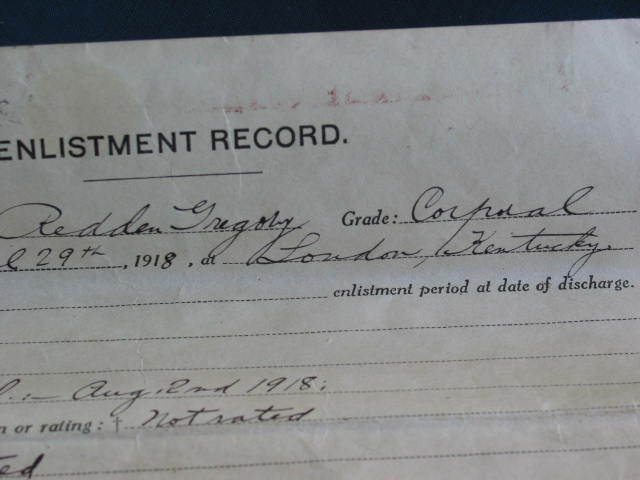 ENLISTMENT RECORD.
Redden Gregory Grade: Corporal
l 29th, 1918, at London, Kentucky.
enlistment period at date of discharge.
Aug. 2nd 1918;
n or rating: † Not rated
ted